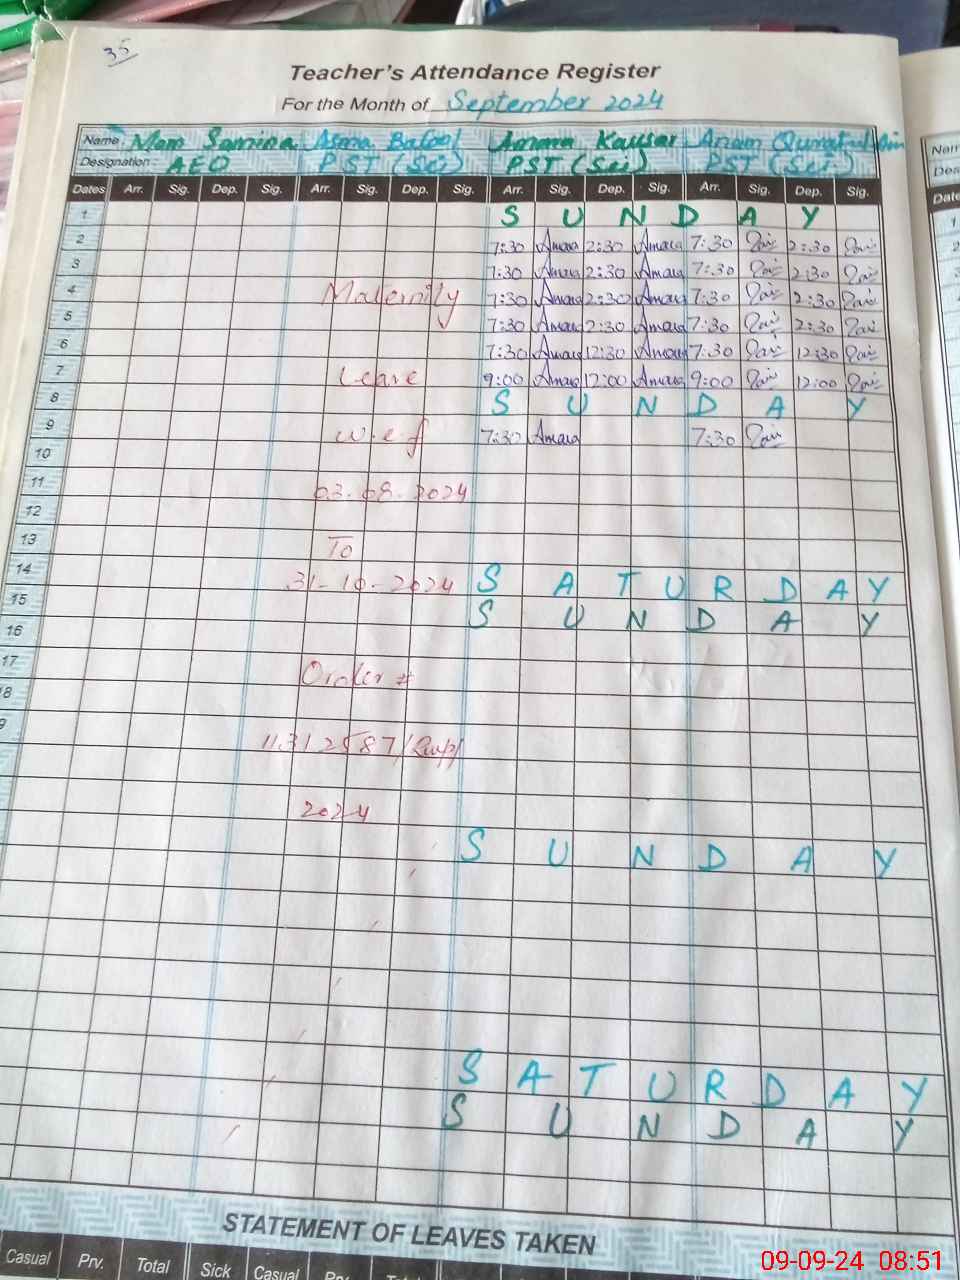 35
Teacher's Attendance Register
For the Month of September 2024
Name: Mam Samina Asma Batool Amara Kausar Anam Quratul Ain
Designation: AEO PST (Sci) PST (Sci) PST (Sci)
Dates Arr. Sig. Dep. Sig. Arr. Sig. Dep. Sig. Arr. Sig. Dep. Sig. Arr. Sig. Dep. Sig.
1 SUNDAY
2 7:30 Amara 2:30 Amara 7:30 2:30
3 7:30 Amara 2:30 Amara 7:30 2:30
4 Maternity 7:30 Amara 2:30 Amara 7:30 2:30
5 7:30 Amara 2:30 Amara 7:30 2:30
6 7:30 Amara 12:30 Amara 7:30 12:30
7 Leave 9:00 Amara 12:00 Amara 9:00 12:00
8 SUNDAY
9 w.e.f 7:30 Amara 7:30
10
11 03.08.2024
12
13 To
14 31-10-2024 SATURDAY
15 SUNDAY
16
17 Order #
18
9 11312587/Rwp/
2024
SUNDAY
SATURDAY
SUNDAY
STATEMENT OF LEAVES TAKEN
Casual Prv. Total Sick Casual
Nam
Des
Date
1
2
3
09-09-24 08:51